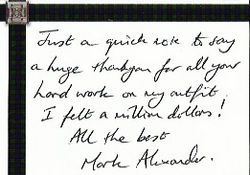 Just a quick note to say
a huge thankyou for all your
hard work on my outfit.
I felt a million dollars!
All the best
Mark Alexander.